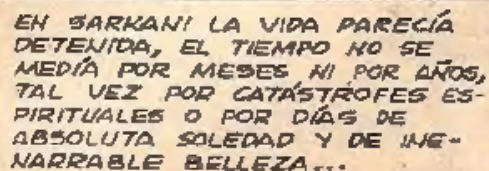 EN SARKANI LA VIDA PARECÍA
DETENIDA, EL TIEMPO NO SE
MEDÍA POR MESES NI POR AÑOS,
TAL VEZ POR CATÁSTROFES ES-
PIRITUALES O POR DÍAS DE
ABSOLUTA SOLEDAD Y DE INE-
NARRABLE BELLEZA...